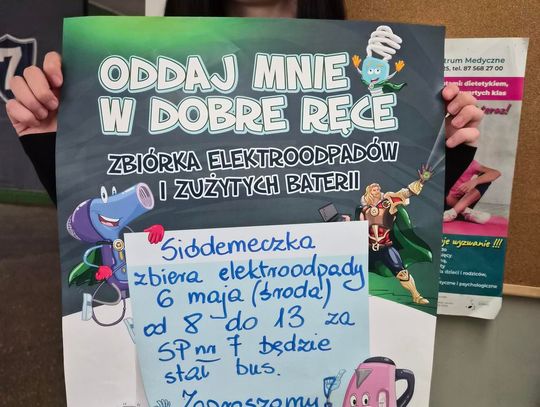 7
ODDAJ MNIE
W DOBRE RĘCE
ZBIÓRKA ELEKTROODPADÓW
I ZUŻYTYCH BATERII
Siódemeczka
zbiera elektroodpady
6 maja (środa)
od 8 do 13 za
SP nr 7 będzie
stał bus.
Zapraszamy
trum Medyczne
25, tel. 87 568 27 00
dietetykiem,
wartych klas
je wyzwanie !!!
dzieci i rodziców,
tyczne i psychologiczne